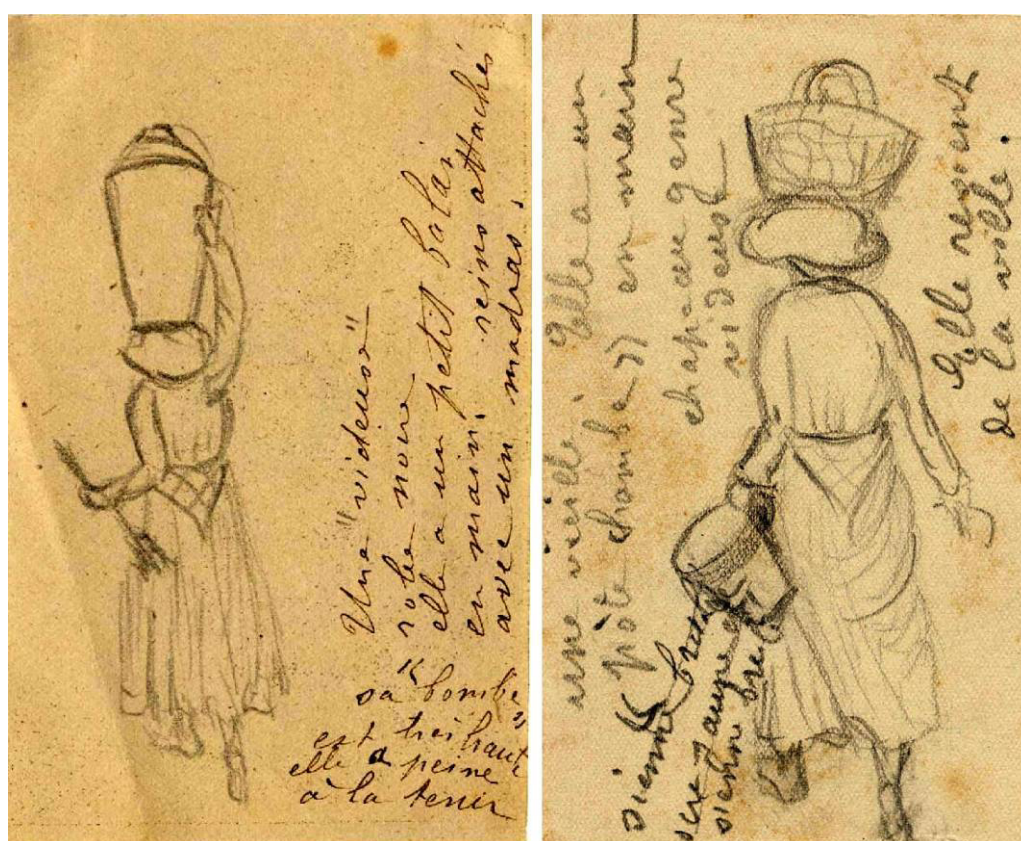 Une "videuse"
robe noire
elle a un petit balai
en main. reins attachés
avec un madras.
sa "bombe"
est très haute
elle a peine
à la tenir
une vieille. Elle a un
"pôte chambe" en main
chapeau genre
videuse
Elle revient
de la ville.
sienne
sienne